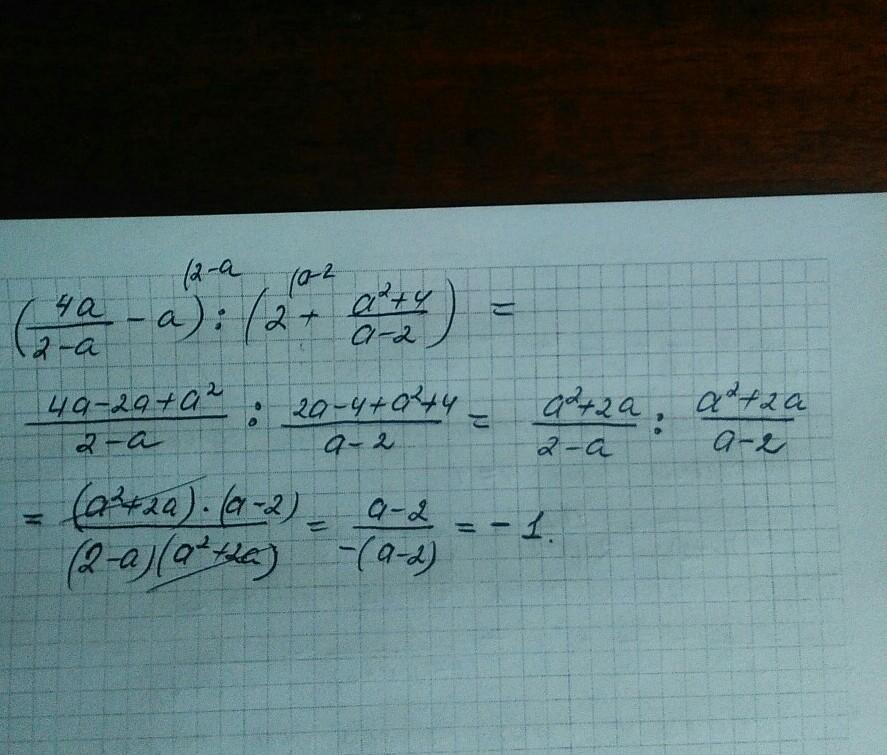 (2-a (a-2
(4a/2-a - a) : (2 + a²+4/a-2) =
4a-2a+a²/2-a : 2a-4+a²+4/a-2 = a²+2a/2-a : a²+2a/a-2
= (a²+2a)·(a-2)/(2-a)(a²+2a) = a-2/-(a-2) = -1.